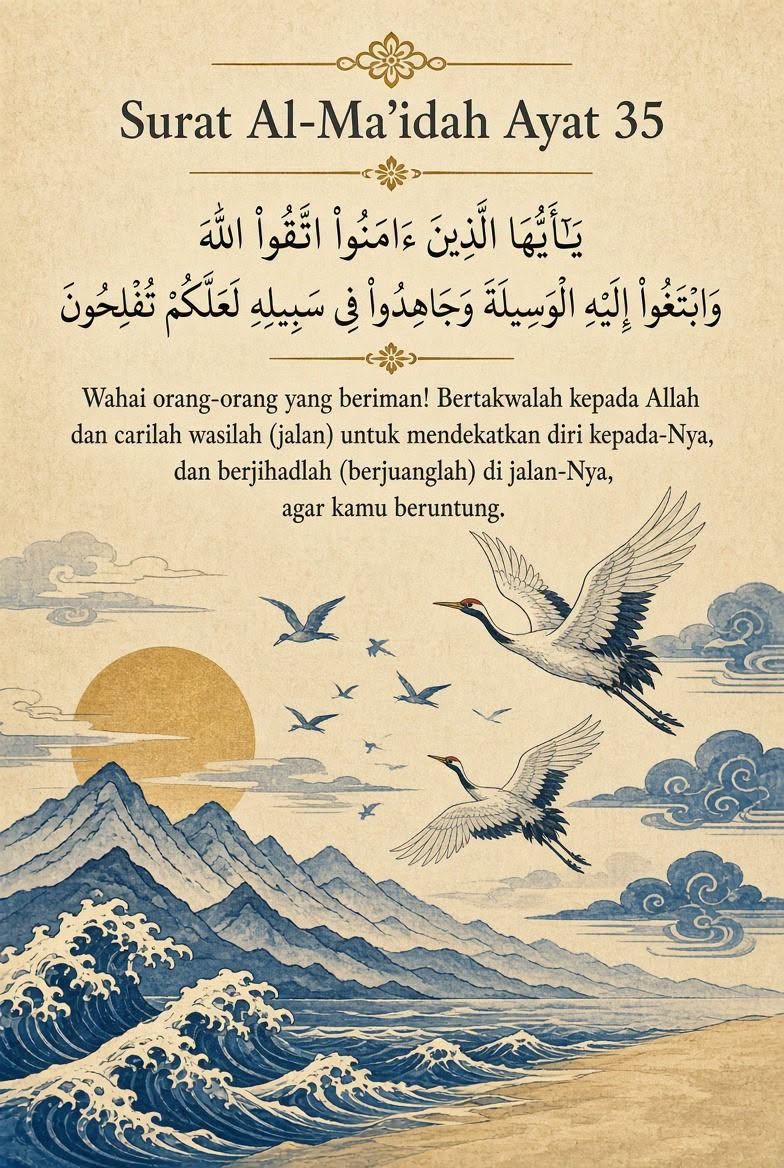 Surat Al-Ma'idah Ayat 35
يَـٰٓأَيُّهَا الَّذِينَ ءَامَنُوا۟ اتَّقُوا۟ اللَّهَ
وَابْتَغُوا۟ إِلَيْهِ الْوَسِيلَةَ وَجَاهِدُوا۟ فِى سَبِيلِهِ لَعَلَّكُمْ تُفْلِحُونَ
Wahai orang-orang yang beriman! Bertakwalah kepada Allah
dan carilah wasilah (jalan) untuk mendekatkan diri kepada-Nya,
dan berjihadlah (berjuanglah) di jalan-Nya,
agar kamu beruntung.